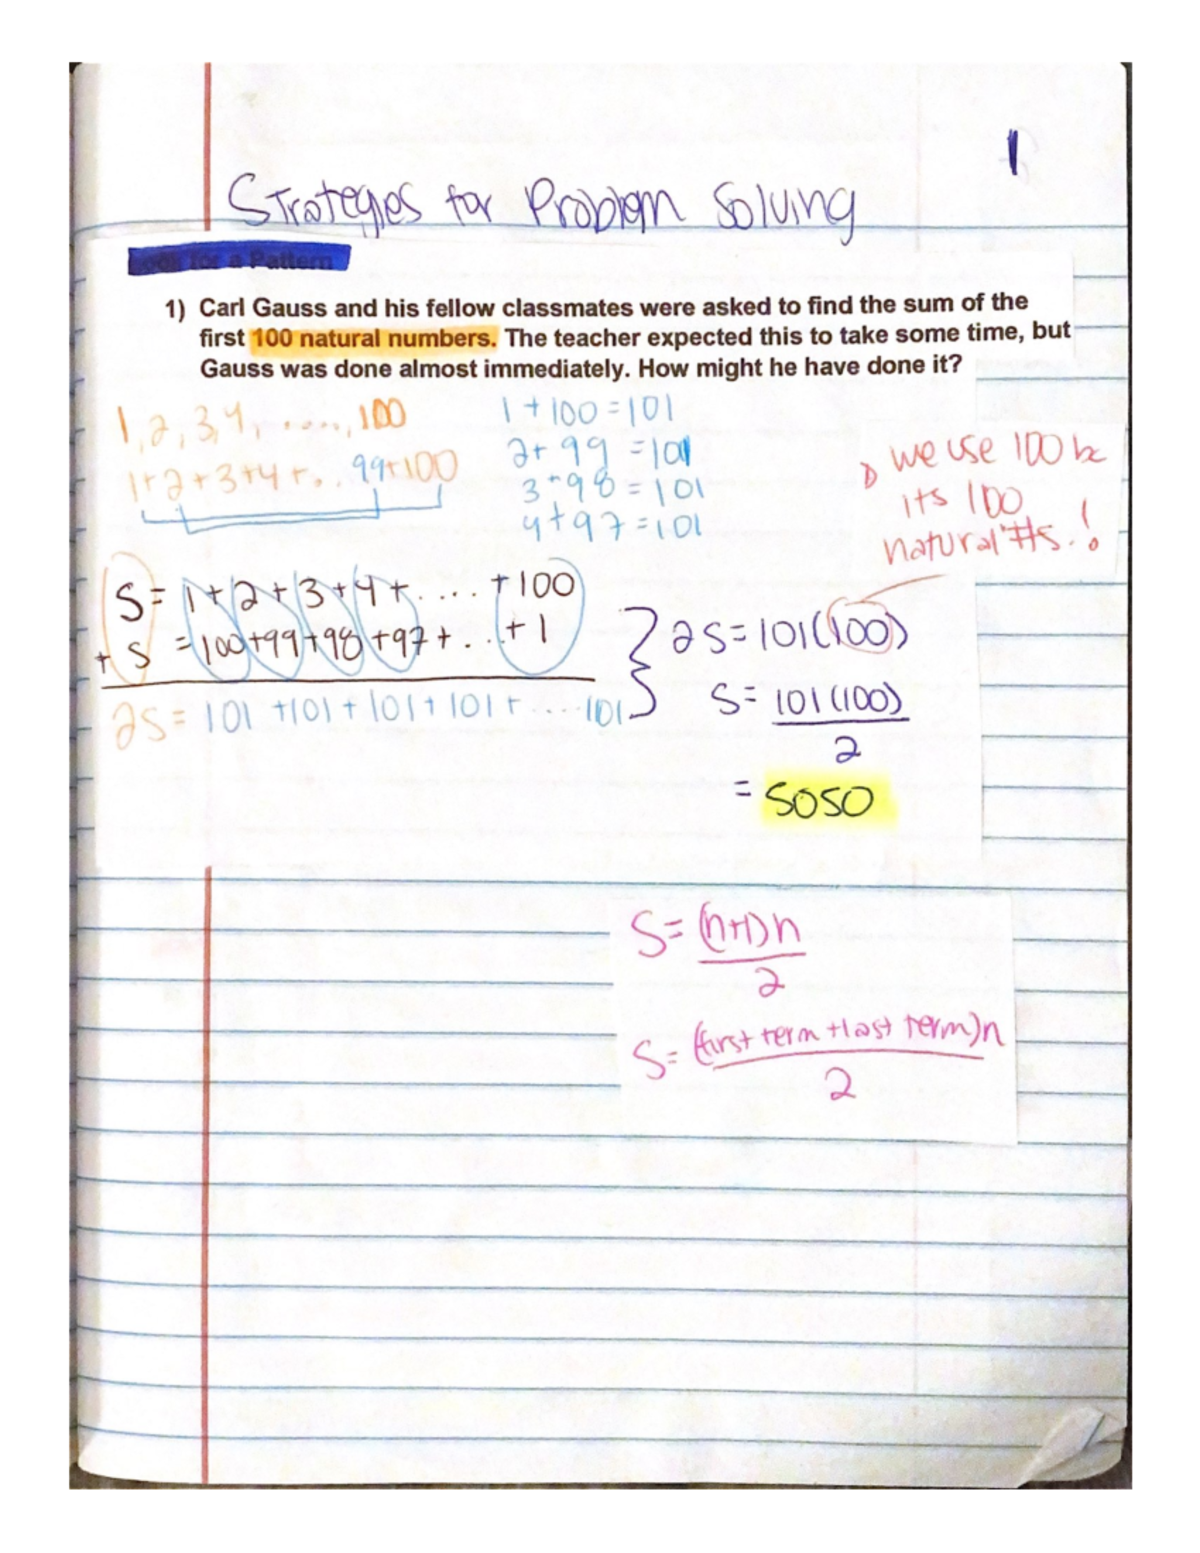 1
Strategies for Problem Solving
Look for a Pattern
1) Carl Gauss and his fellow classmates were asked to find the sum of the
first 100 natural numbers. The teacher expected this to take some time, but
Gauss was done almost immediately. How might he have done it?
1, 2, 3, 4, ....., 100
1+2+3+4+... 99+100
1+100=101
2+99=101
3+98=101
4+97=101
we use 100 bc
its 100
natural #s.!
S= 1+2+3+4+....+100
+ S =100+99+98+97+...+1
2S= 101+101+101+101+....101
2S=101(100)
S= 101(100)
2
= 5050
S= (n+1)n
2
S= (first term + last term)n
2